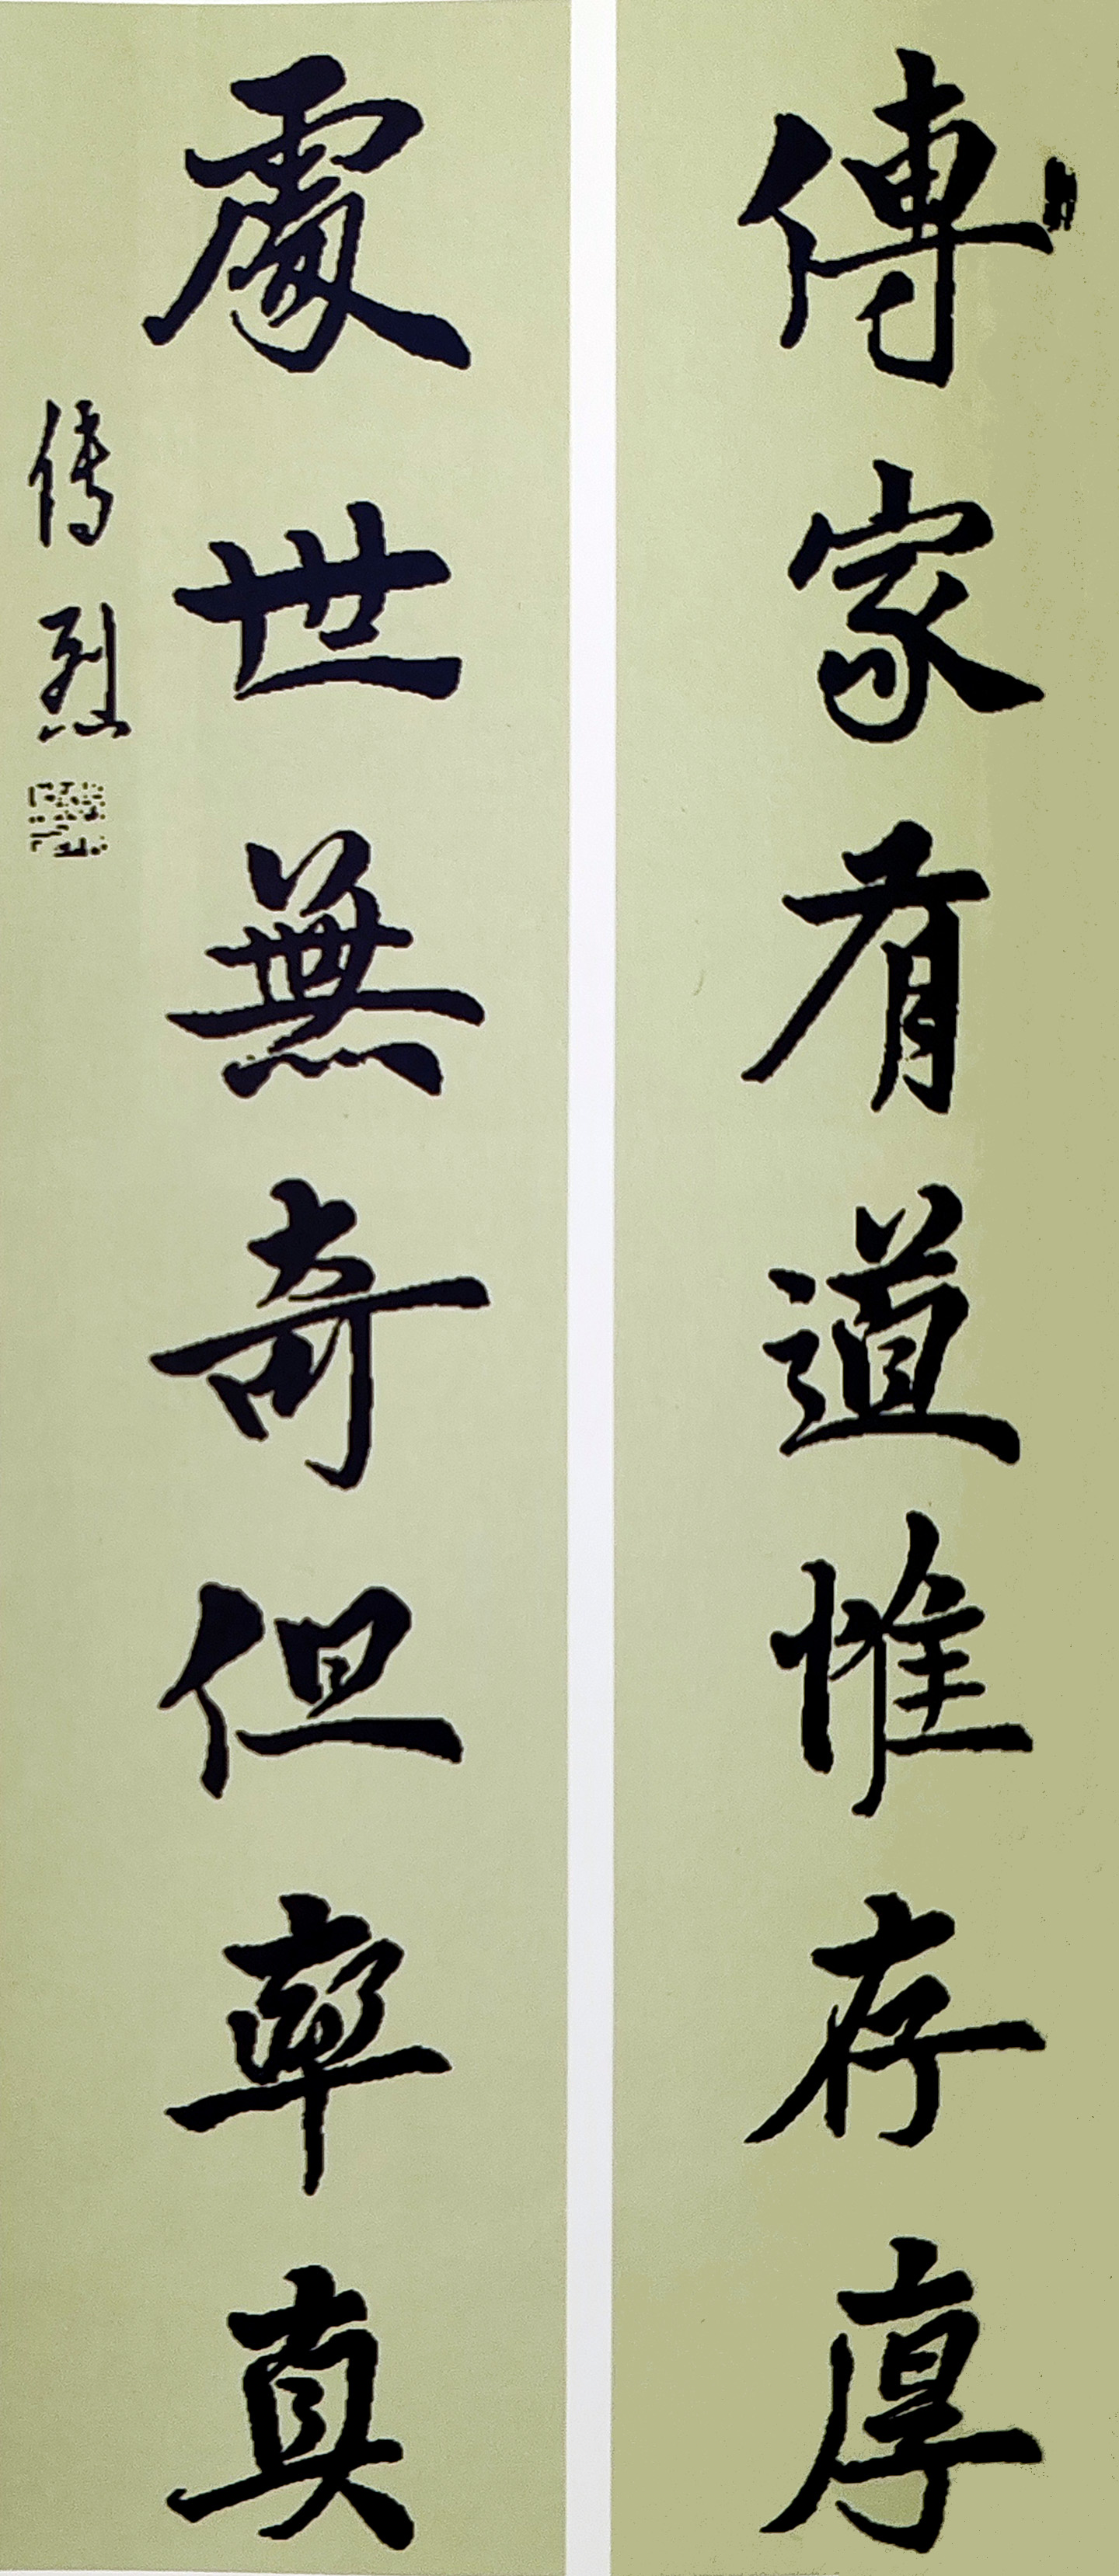 傳家有道惟存厚
處世無奇但率真
传烈